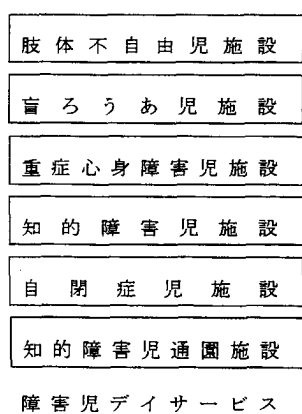 肢体不自由児施設
盲ろうあ児施設
重症心身障害児施設
知的障害児施設
自閉症児施設
知的障害児通園施設
障害児デイサービス